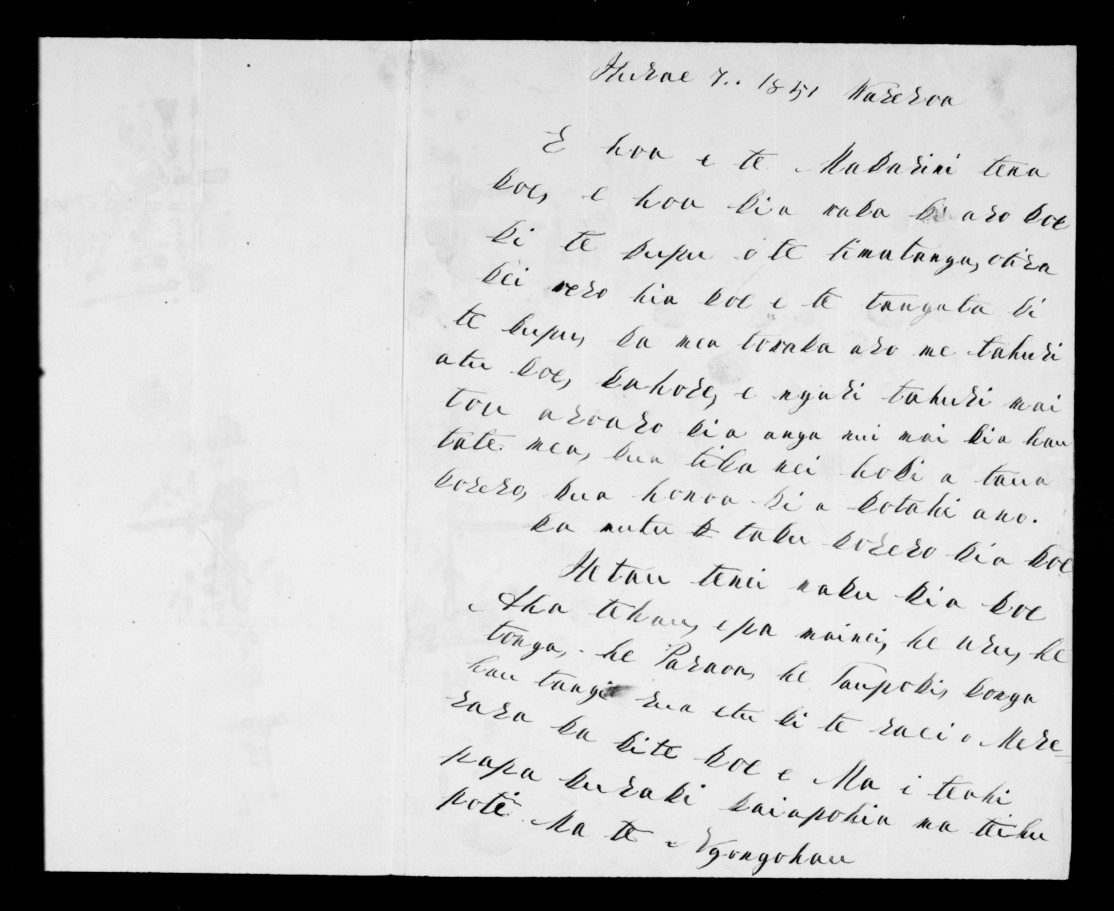 Hurae 7.. 1851 Wareroa
E hoa e te Makarini tena
koe, e hoa kia raka ki aro koe
ki te kupu o te timatanga, otira
kei rero hia koe e te tangata ki
te kupu, ka mea toraka aro me tahuri
atu koe, kahore, e ngari tahuri mai
tou aroaro kia anga nui mai kia hau
tate mea, kua tika nei hoki a taua
korero, kua honoa ki a kotahi ano.
ka mutu taku korero kia koe
He tau tenei naku kia koe
Aha tehau, e pa mainei, he uru, he
tonga, he Paraoa, he Taupoki, konga
hau tangi rua etu ki te raei o Mere-
rara ka kite koe e Ma i teahi
papa kuraki kaiapohia ma teihu
pote Ma te Ngongohau